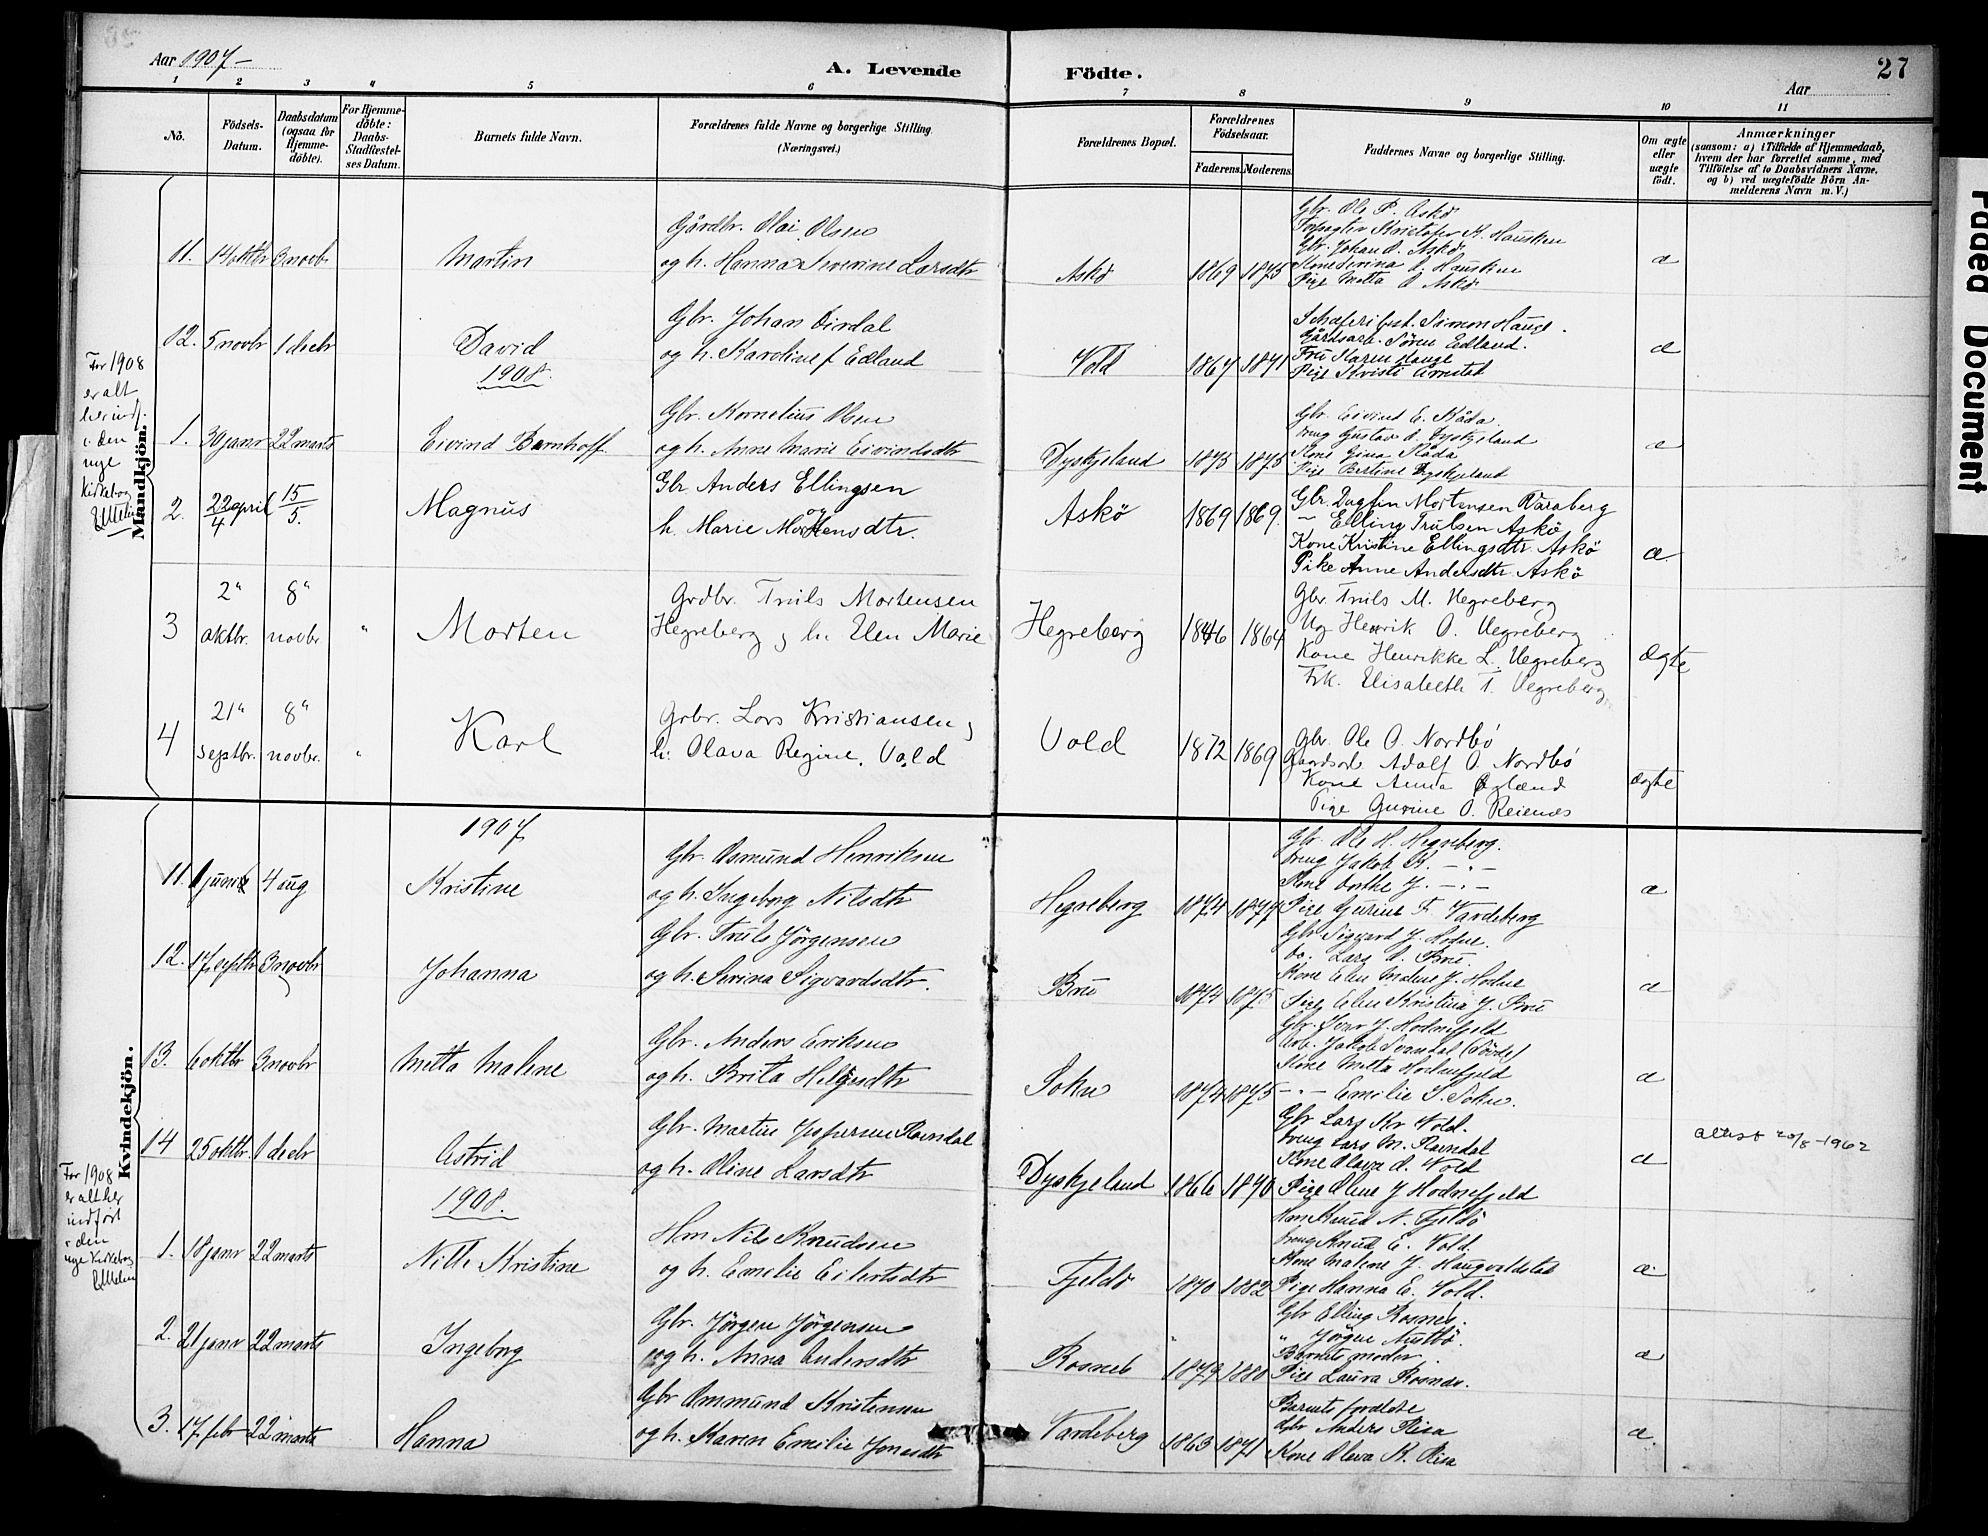 Aar 1907 —
A. Levende Födte.
27
Aar
1 2 3 4 5 6 7 8 9 10 11
No.
Födsels-Datum.
Daabsdatum (ogsaa for Hjemme-döbte).
For Hjemme-döbte: Daabs-Stadfæstel-ses Datum.
Barnets fulde Navn.
Forældrenes fulde Navne og borgerlige Stilling. (Næringsvei.)
Forældrenes Bopæl.
Forældrenes Födselsaar.
Faderens. Moderens.
Faddernes Navne og borgerlige Stilling.
Om ægte eller uægte födt.
Anmærkninger
(saasom: a) i Tilfælde af Hjemmedaab, hvem der har forrettet samme, med Tilföielse af to Daabsvidners Navne, og b) ved uægtefödte Börn An-melderens Navn m. V.)
Mandkjön.
For 1908
er alt
her indf.
i den
nye
Kirkebog
11. 14 oktbr 3 novbr Martin
Gårdbr. Olai Olsen
og h. Hanna Severine Larsdtr
Askö 1869 1875
Gbr. Ole P. Askö
Forpagter Kristofer K. Hausken
Gbr. Johan O. Askö
Kone Serina O. Hausken
Pige Metta O Askö
æ
12. 5 novbr 1 decbr David
Gbr. Johan Dirdal
og h. Karoline f Edland
Vold 1867 1871
Simon Hauge.
Gårdsarb. Sören Edland.
Fru Karen Hauge
Pige Kristi
æ
1908.
1. 30 janr 22 marts Eivind Bernhoff
Gbr. Kornelius Olsen
og h. Anne Marie Eivindsdtr
Dyskjeland 1875 1875
Gbr. Eivind E. Råda
Dreng Gustav O. Dyskjeland
Kone Gina Råda
Pige Bertine Dyskjeland
æ
2. 22 april/4 15/5. Magnus
Gbr Anders Ellingsen
og
h. Marie Mortensdtr.
Askö 1869 1869.
Gbr. Dagfin Mortensen Varaberg
— Elling Trulsen Askö
Kone Kristine Ellingsdtr Askö
Pike Anne Andersdtr Askö
æ.
3 2" oktbr. 8" novbr. " Morten
Grdbr. Truls Mortensen
Hegreberg og h. Elen Marie
Hegreberg 1846 1864
Gbr. Truls M. Hegreberg
Ug Henrik O. Hegreberg
Kone Henrikke L. Hegreberg
Frk. Elisabeth T. Hegreberg
ægte
4 21" septbr. 8" novbr. " Karl
Grbr. Lars Kristiansen og
h. Olava Regine, Vold
Vold 1872 1869
Gbr. Ole O. Nordbö
Gaardsarb Adolf O. Nordbö
Kone Anna
Pige Gurine O. Reienæs
ægte
Kvindekjön.
For 1908
er alt her
indfört
i den
nye Kirkebog
1907
11. 1 juni 4 aug Kristine
Gbr. Osmund Henriksen
og h. Ingeborg Nilsdtr
Hegreberg 1874 1877
Gbr. Ole H. Hegreberg.
Dreng Jakob — " —
Kone Dorthe J. — " —
Pige Gurine F. Vardeberg
æ
12. 17 septbr 3 novbr Johanna
Gbr. Truls Jörgensen
og h. Serina Sigvardsdtr.
Bru 1874 1875
Gbr Sigvard J. Hodne.
do. Lars O. Bru.
Kone Elen Malene J. Hodne
Pige Elen Kristina J. Bru
æ
13. 6 oktbr 3 novbr Metta Malene
Gbr. Anders Eriksen
og h. Brita Helgesdtr
Sokn 1874 1875
Gbr. Ivar J. Hodnefjeld
Arb. Jakob Svandal (Sövde)
Kone Metta Hodnefjeld
— " — Emilie S. Sokn.
æ
14 25 oktbr. 1 decbr Astrid
Gbr. Martin Jespersen Ravndal
og h. Oline Larsdtr
Dyskjeland 1866 1870
Gbr Lars Kr Vold.
Dreng Lars M. Ravndal
Kone Olava O. Vold
Pige Oline J Hodnefjeld
æ
attest 20/8 -1962
1908.
1. 18 janr 22 marts Nille Kristine
Hm Nils Knudsen
og h. Emelie Eilertsdtr
Fjeldö 1870 1882
Hm Knud N. Fjeldö
Dreng Knud E. Vold.
Kone Malene J. Haugvaldstad
Pige Hanna E. Vold.
æ.
2. 21 janr 22 marts Ingeborg
Gbr. Jörgen Jörgensen
og h. Anna Andersdtr
Rosnes 1879 1880
Gbr Elling Rosnes.
" Jörgen Austbö.
Barnets moder.
Pige Laura Rosnes.
æ
3. 17 febr 22 marts Hanna
Gbr Ommund Kristensen
og h. Karen Emilie Jonasdtr
Vardeberg 1863 1871
Barnets forældre
Gbr Anders Risa
Kone Olava K. Risa
æ.
Faded Document